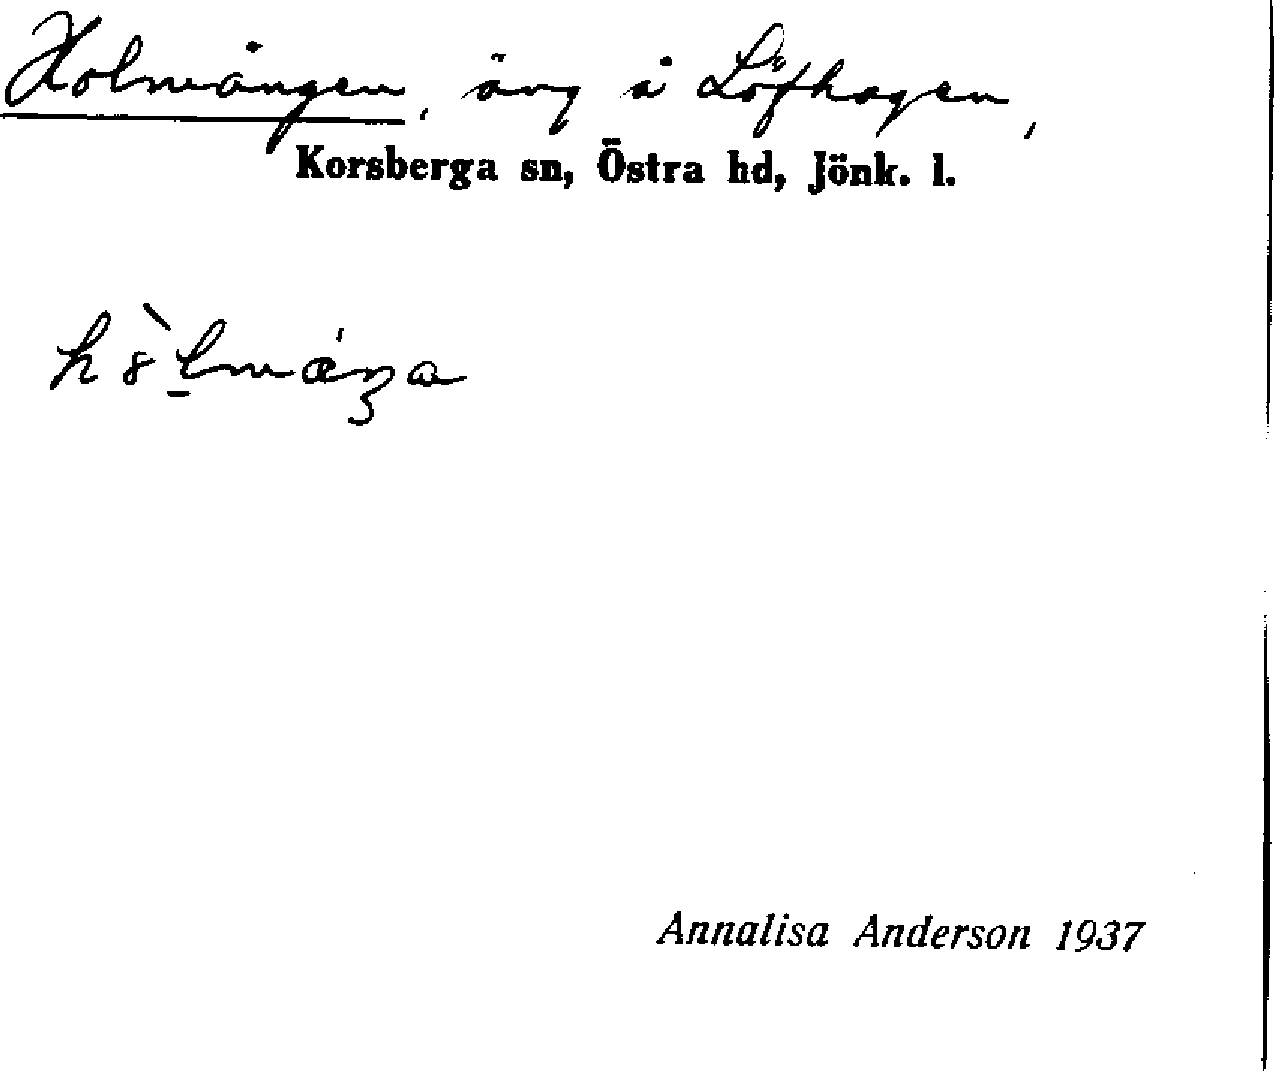 Holmången, äng å Löfhagen,
Korsberga sn, Östra hd, Jönk. l.
Annalisa Anderson 1937